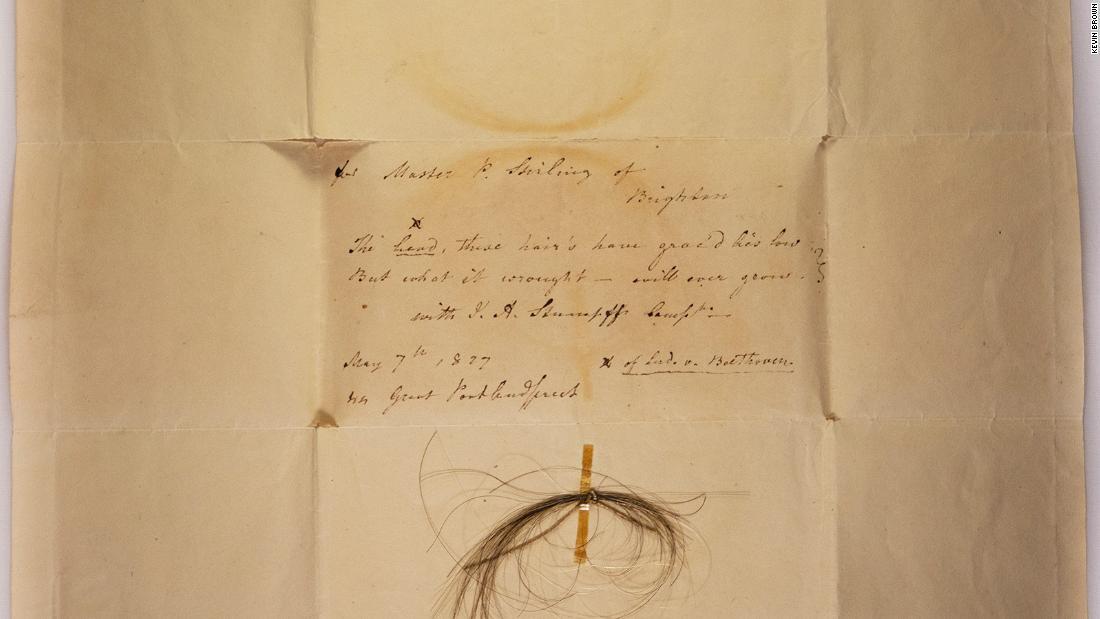 for Master P. Stirling of
Brighton
The head, these hair's have grac'd lies low
But what it wrought — will ever grow.
with J. A. Stumpff's
May 7th, 1827
x of Lud. v. Beethoven.
Great Portland Street
KEVIN BROWN